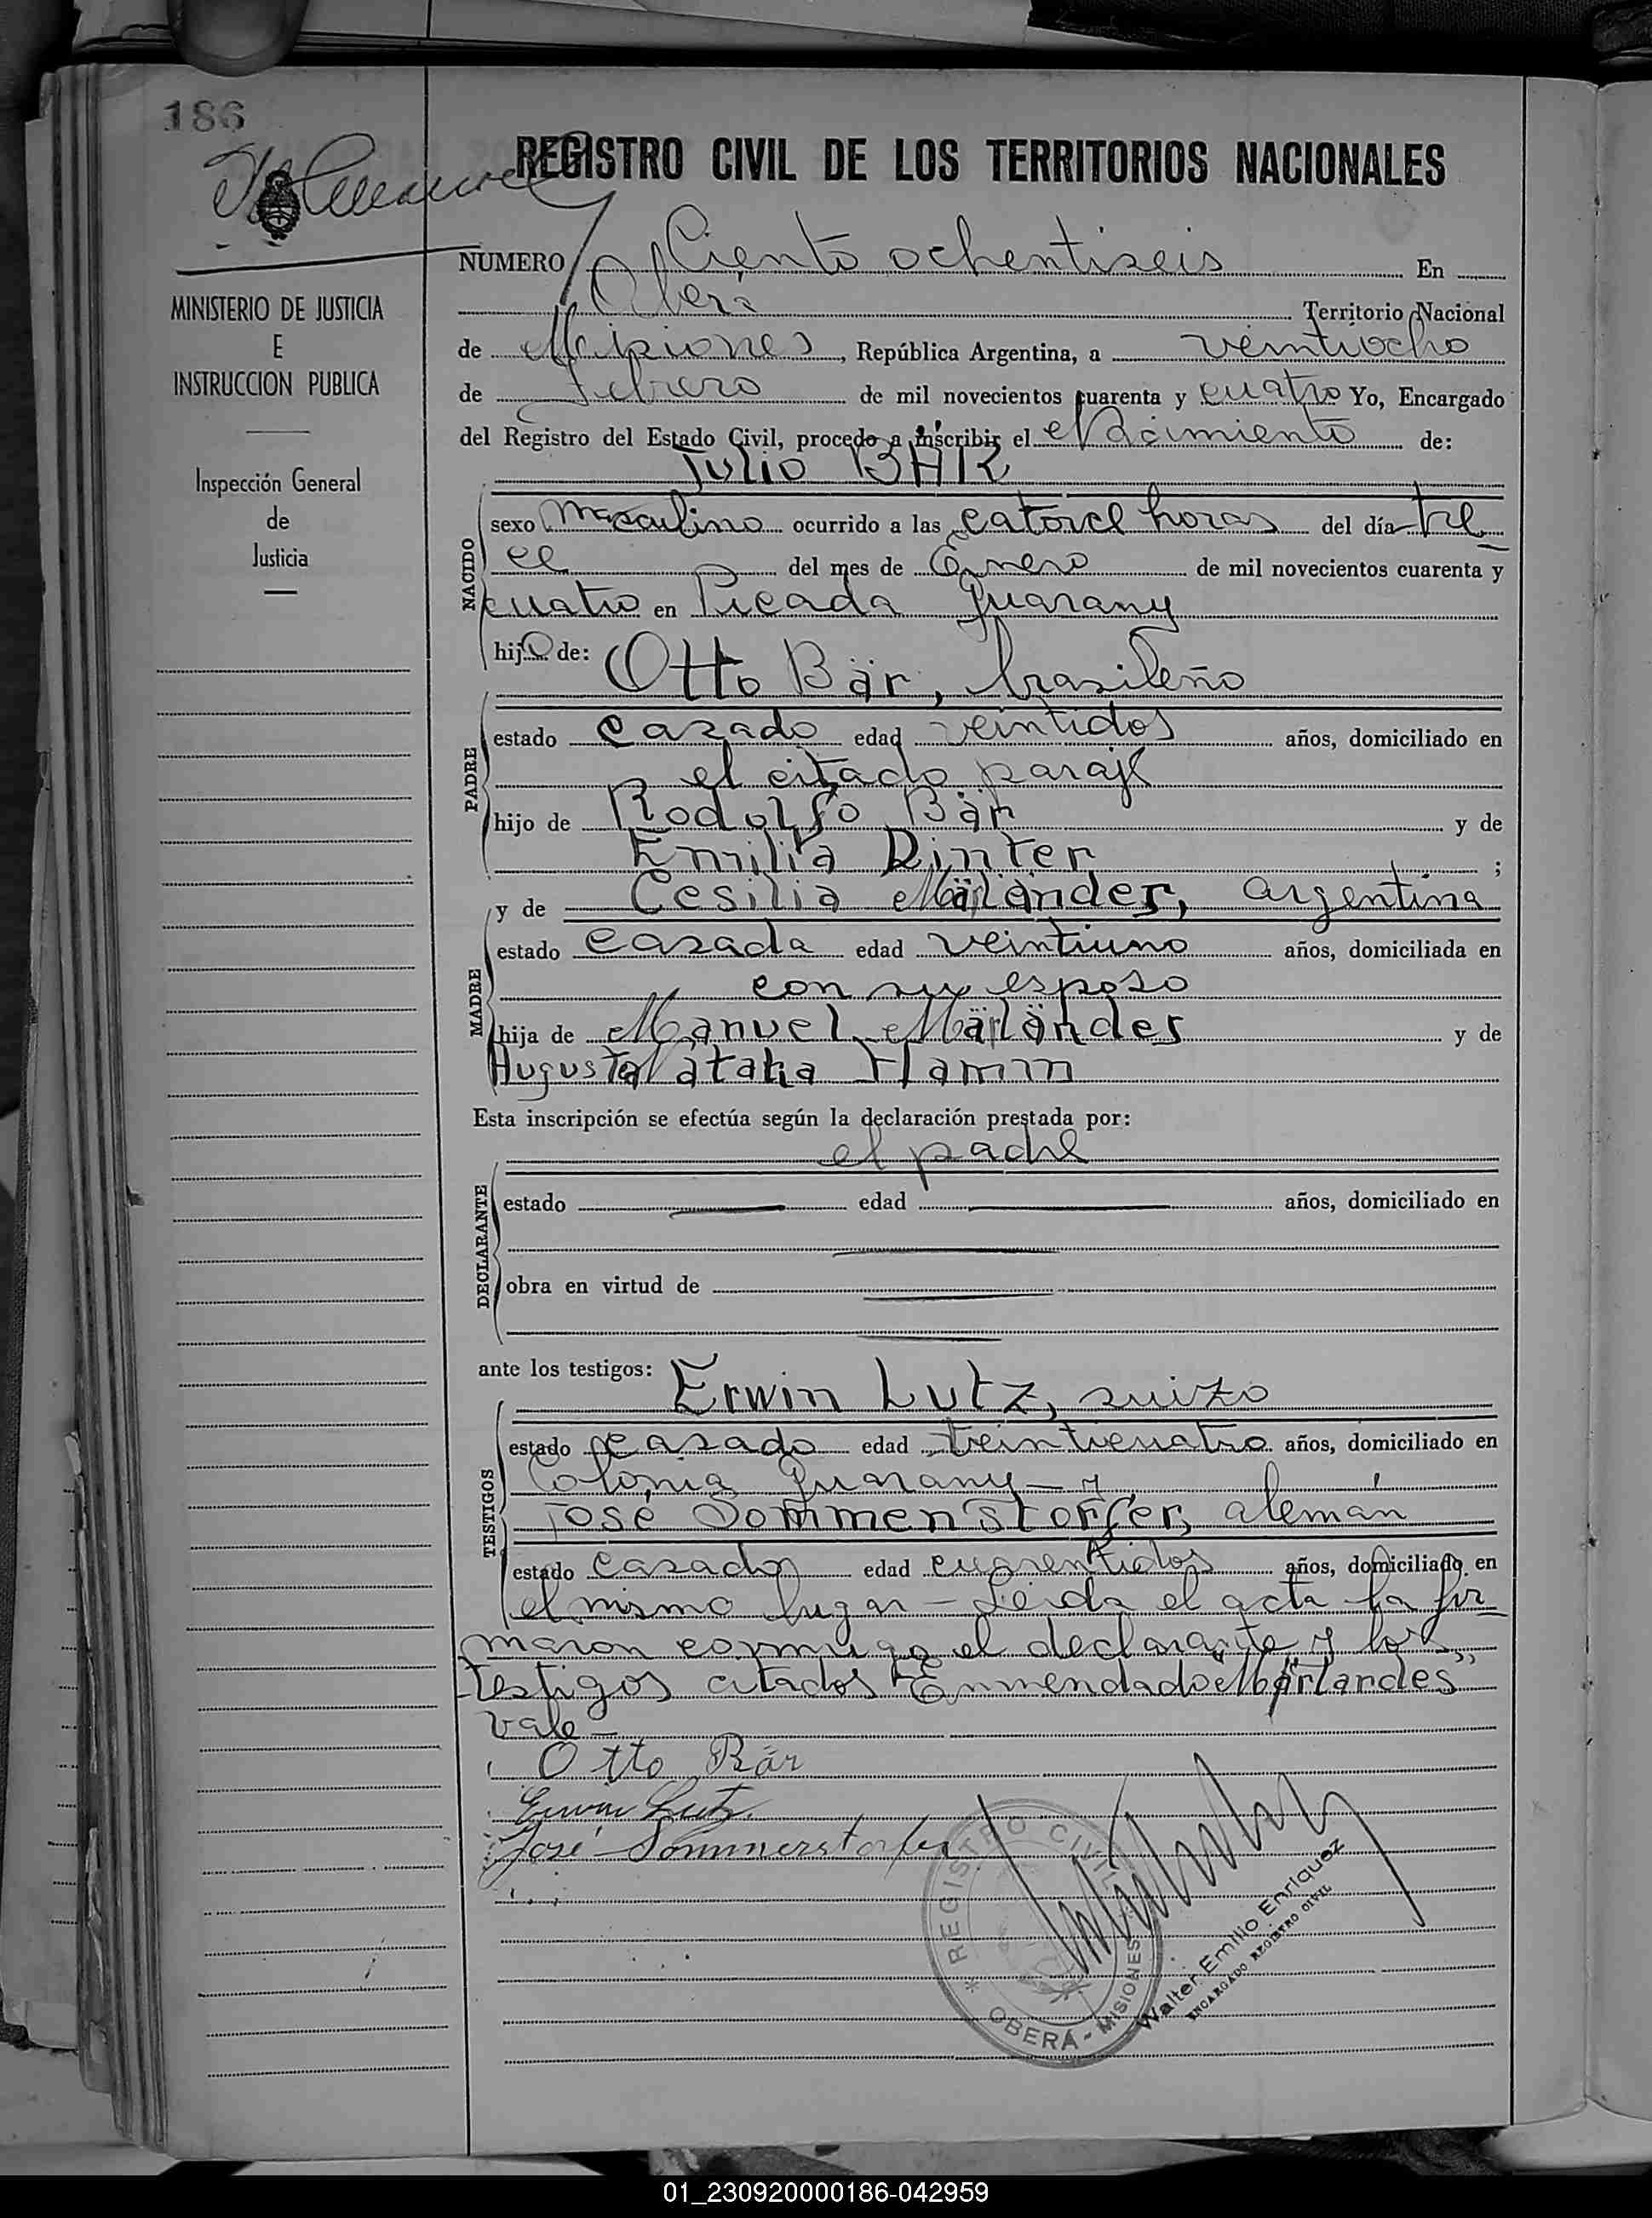 186
REGISTRO CIVIL DE LOS TERRITORIOS NACIONALES
MINISTERIO DE JUSTICIA
E
INSTRUCCION PUBLICA
Inspección General
de
Justicia
NUMERO Ciento ochentiseis En
Oberá Territorio Nacional
de Misiones, República Argentina, a veintiocho
de Febrero de mil novecientos cuarenta y cuatro Yo, Encargado
del Registro del Estado Civil, procedo a inscribir el Nacimiento de:
Julio BÄR
NACIDO
sexo masculino ocurrido a las catorce horas del día tre
ce del mes de Enero de mil novecientos cuarenta y
cuatro en Picada Guarany
hijo de: Otto Bär, brasileño
PADRE
estado casado edad veintidos años, domiciliado en
el citado paraje
hijo de Rodolfo Bär y de
Emilia Dinter ;
y de Cesilia Märländer, argentina
MADRE
estado casada edad veintiuno años, domiciliada en
con su esposo
hija de Manuel Märländes y de
Augusta Natalia Hamm
Esta inscripción se efectúa según la declaración prestada por:
el padre
DECLARANTE
estado edad años, domiciliado en
obra en virtud de
ante los testigos: Erwin Lutz, suizo
TESTIGOS
estado casado edad treinticuatro años, domiciliado en
Colonia Guarany - y
José Sommenstorfer, alemán
estado casado edad cuarentidos años, domiciliado en
el mismo lugar - Leida el acta la fir
maron conmigo el declarante y los
testigos citados Enmendado "Märlandes"
vale
Otto Bär
Erwin Lutz.
José Sommerstorfer
REGISTRO CIVIL
OBERÁ - MISIONES
Walter Emilio Enriquez
ENCARGADO REGISTRO CIVIL
01_230920000186-042959